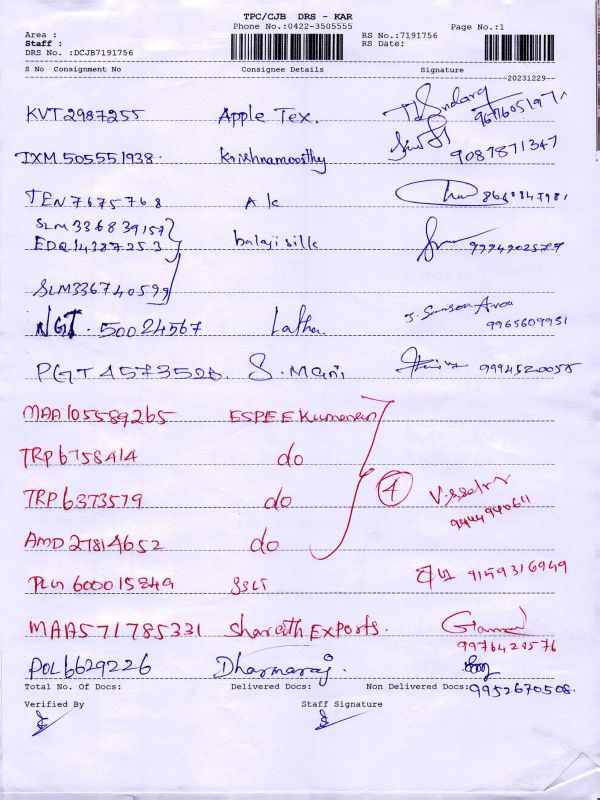 TPC/CJB DRS - KAR
Phone No.:0422-3505555
Page No.:1
Area :
Staff :
DRS No. :DCJB7191756
RS No.:7191756
RS Date:
S No Consignment No Consignee Details Signature
20231229
KVT2987255 Apple Tex.
IXM 505551938. Krishnamoorthy 9087871347
TEN 7675768 A k
SLM336839157
EDR14387253 balaji silk 9994902577
SLM336740599
NGT. 50024567 Latha 9965609951
PGT 4573526. S. Mani 9994520055
MAA105589265 ESPEE Kumaran
TRP 6758414 do
TRP 6373579 do 4
9444940611
AMD 27814652 do
600015849 9159316949
MAA571785331 Sharath Exports.
9976428576
POL6629226 Dharmaraj.
Total No. Of Docs: Delivered Docs: Non Delivered Docs: 9952670508.
Verified By Staff Signature